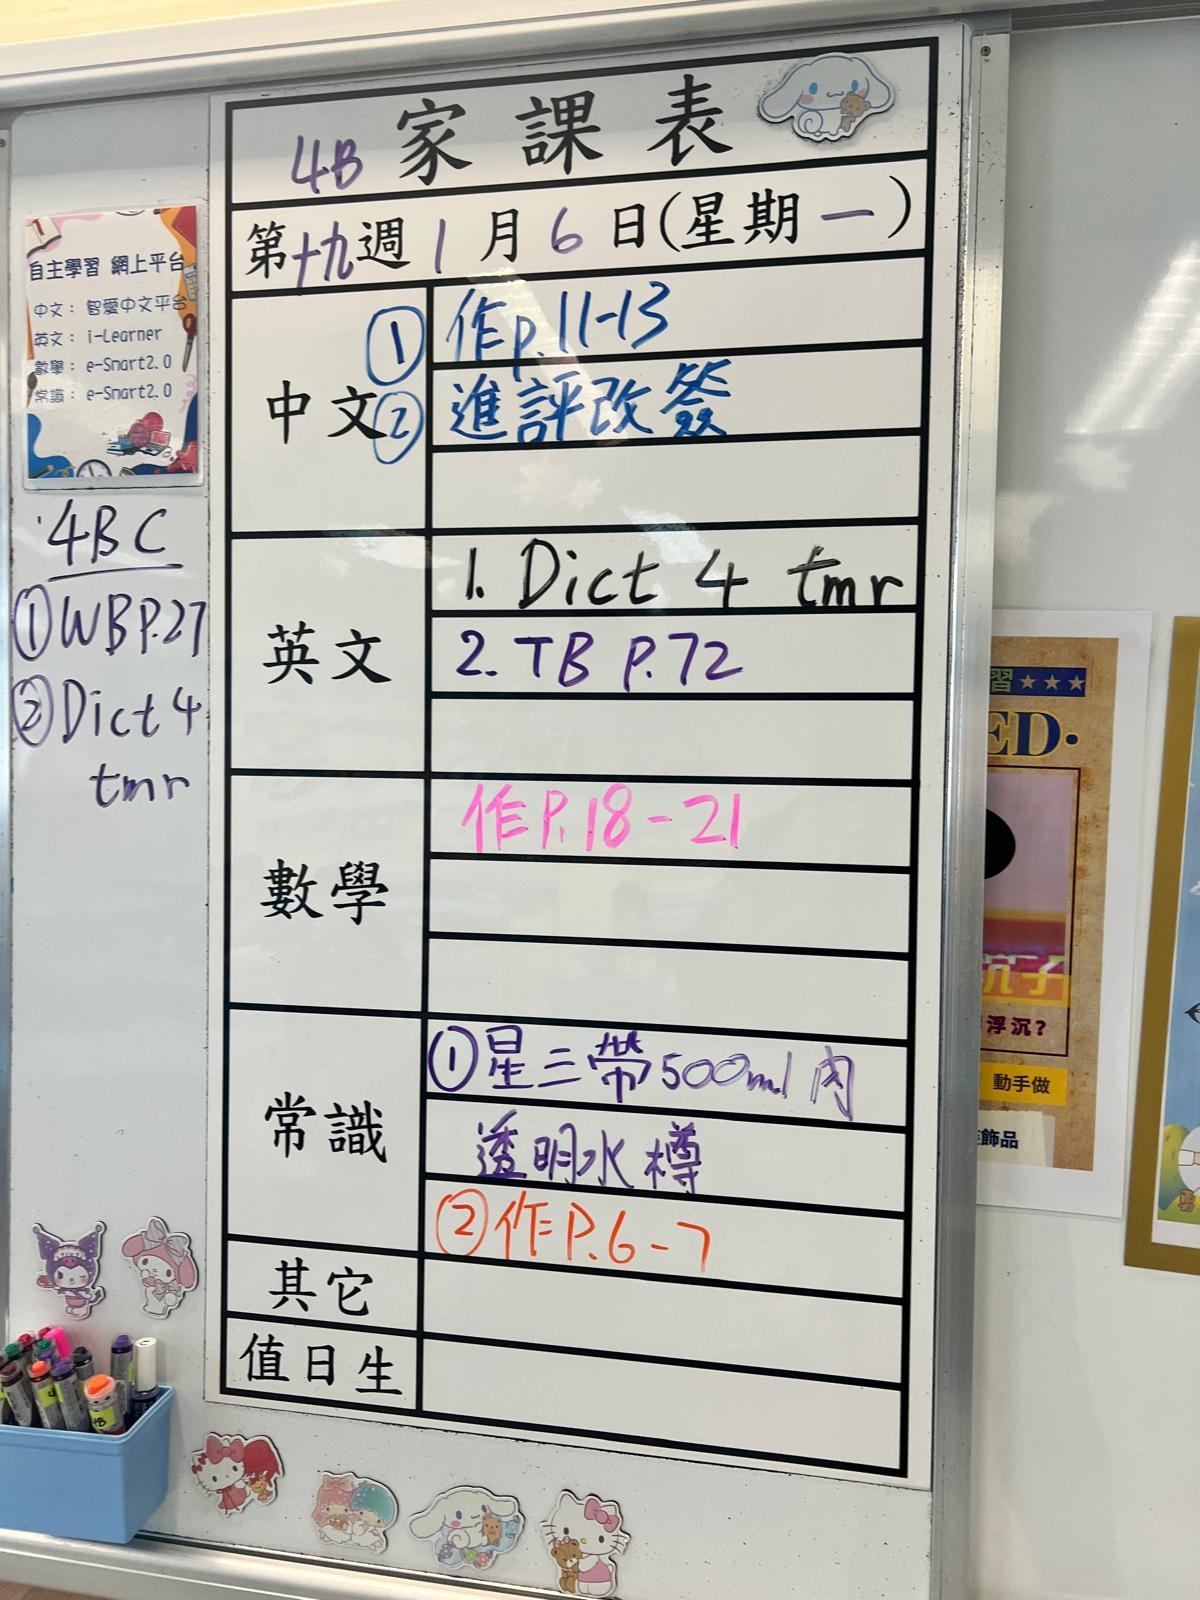 4B 家課表
第十九週 1月6日(星期一)
中文
① 作p.11-13
② 進評改簽
英文
1. Dict 4 tmr
2. TB P.72
數學
作P.18-21
常識
①星三帶500ml內
透明水樽
②作P.6-7
其它
值日生
自主學習 網上平台
中文： 智愛中文平台
英文： i-Learner
數學： e-Smart2.0
常識： e-Smart2.0
4BC
①WBP.27
②Dict 4
tmr
習★★★
ED·
沉子
浮沉?
動手做
飾品